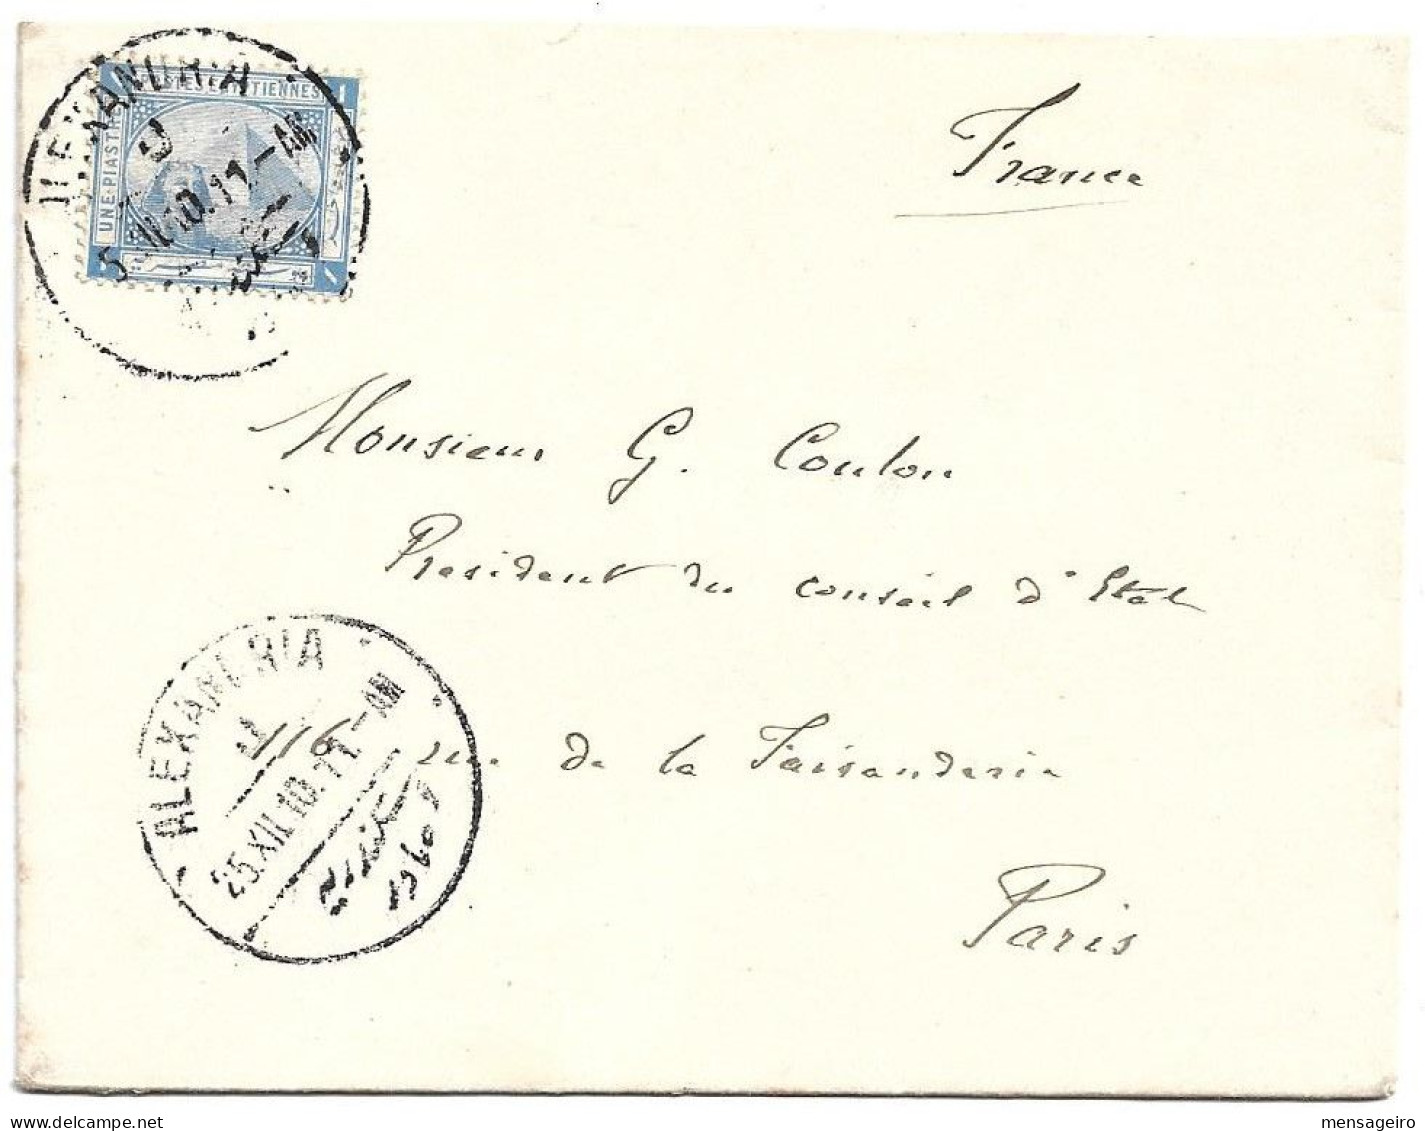 ALEXANDRIA
POSTES EGYPTIENNES
1
UNE PIASTRE
France
Monsieur G. Coulon
President du conseil d'Etat
116 rue de la Faisanderie
Paris
ALEXANDRIA
25.XII.10.11-AM
mensageiro